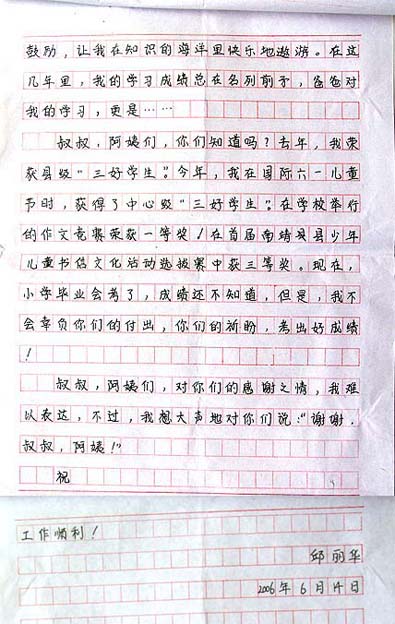 鼓励，让我在知识的海洋里快乐地遨游。在这
几年里，我的学习成绩总在名列前矛，爸爸对
我的学习，更是……
叔叔，阿姨们，你们知道吗？去年，我荣
获县级“三好学生”。今年，我在国际六一儿童
节时，获得了中心级“三好学生”。在学校举行
的作文竞赛荣获一等奖！在首届南靖县县少年
儿童书信文化活动选拔赛中获三等奖。现在，
小学毕业会考了，成绩还不知道，但是，我不
会辜负你们的付出，你们的祈盼，考出好成绩
！
叔叔，阿姨们，对你们的感谢之情，我难
以表达，不过，我想大声地对你们说：“谢谢．
叔叔，阿姨！”
祝
工作顺利！
邱丽华
2006年6月14日